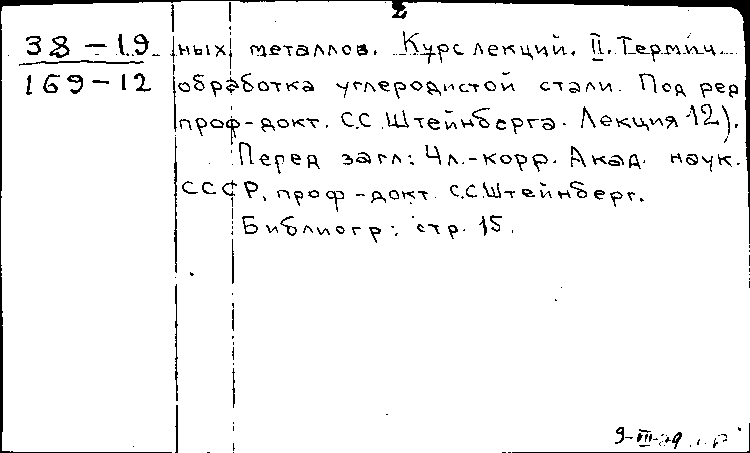 2
38-19 ных металлов. Курс лекций. II. Термич.
169-12 обработка углеродистой стали. Под ред
проф-докт. С.С. Штейнберга. Лекция 12).
Перед загл: Чл.-корр. Акад. наук.
СССР, проф-докт. С.С. Штейнберг.
Библиогр: стр. 15.